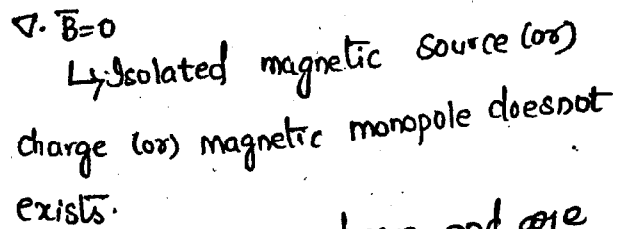 ∇. B̅=0
↳ Isolated magnetic source (or)
charge (or) magnetic monopole doesnot
exists.
and are